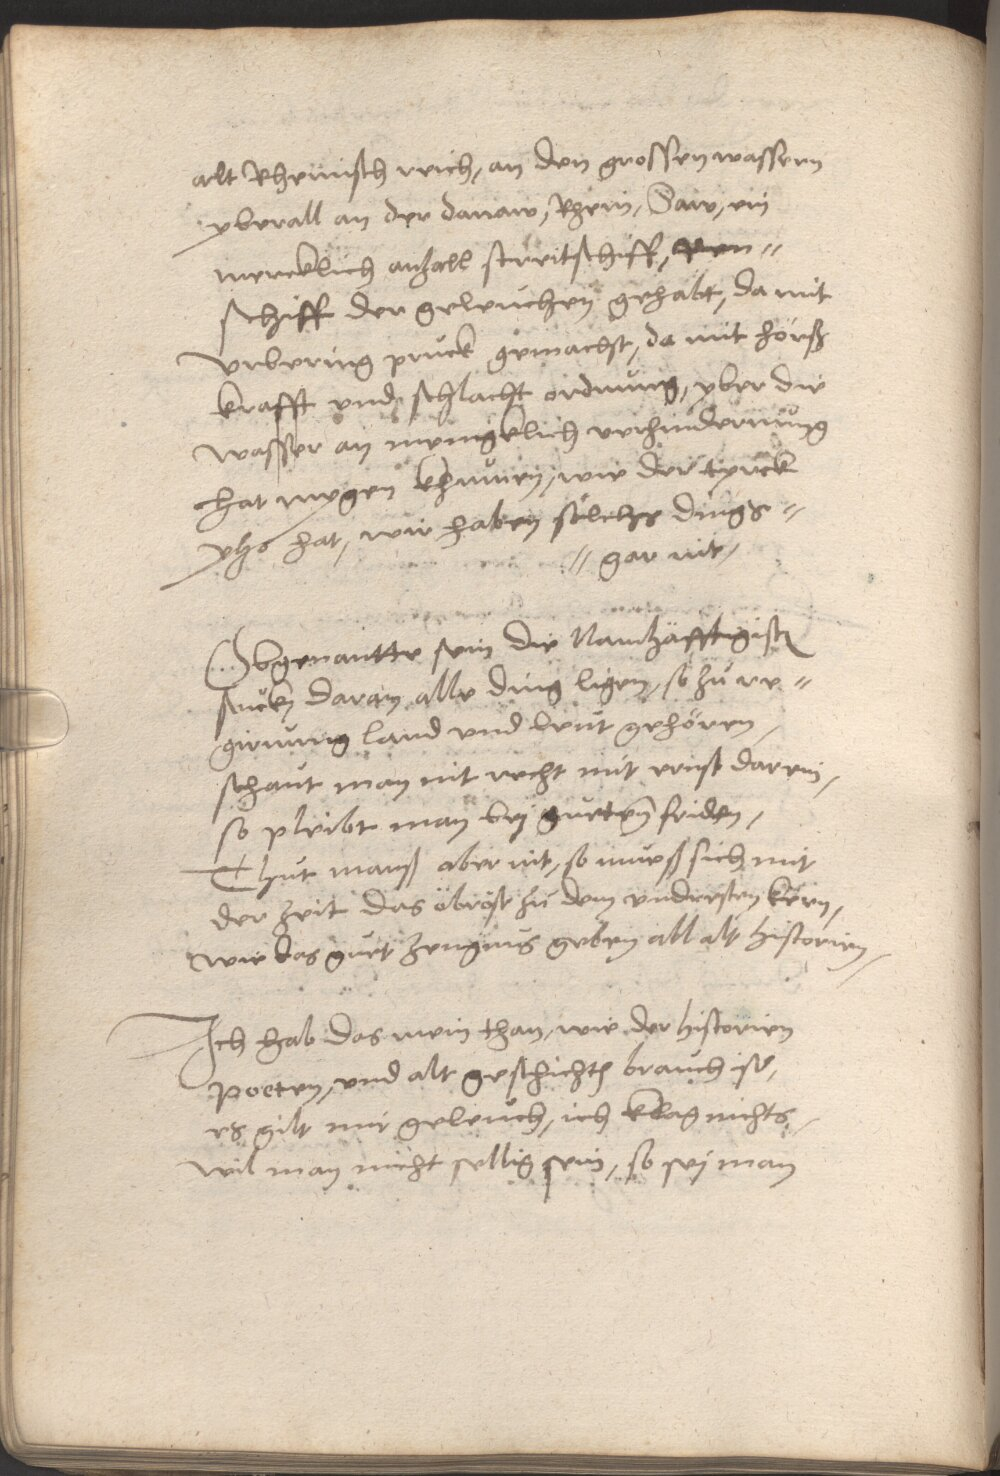 alt Rhömisch reich, an den grossen wassern
yberall an der donaw, Rhein, Saw, ein
mercklich anzall streitschiff, Ren=
schiff der geleichen gehabt, da mit
urbering pruck gemacht, da mit hörß
krafft vnd schlacht ordnung, yber die
wasser an menigklich verhinderung
hat mygen khumen, wie der tyrck
ytzo hat, wir haben sölchs dings=
=gar nit,
Obgenantte sein die Namhäfftigistn
stuckh daran alle ding ligen, so zů re=
girung land vnd leut gehören,
schaut man nit recht mit ernst darein,
so pleibt man bej guetem friden,
Thut manß aber nit, so mueß sich mit
der zeit das öbröst zů dem vndersten kern,
wie das guet zeugnus geben all alt historien,
Ich hab das mein than, wie der historien
Poeten, vnd alt geschichtn brauch ist,
es gilt mir geleich, ich klag nichts,
wil man nicht sellig sein, so sej man